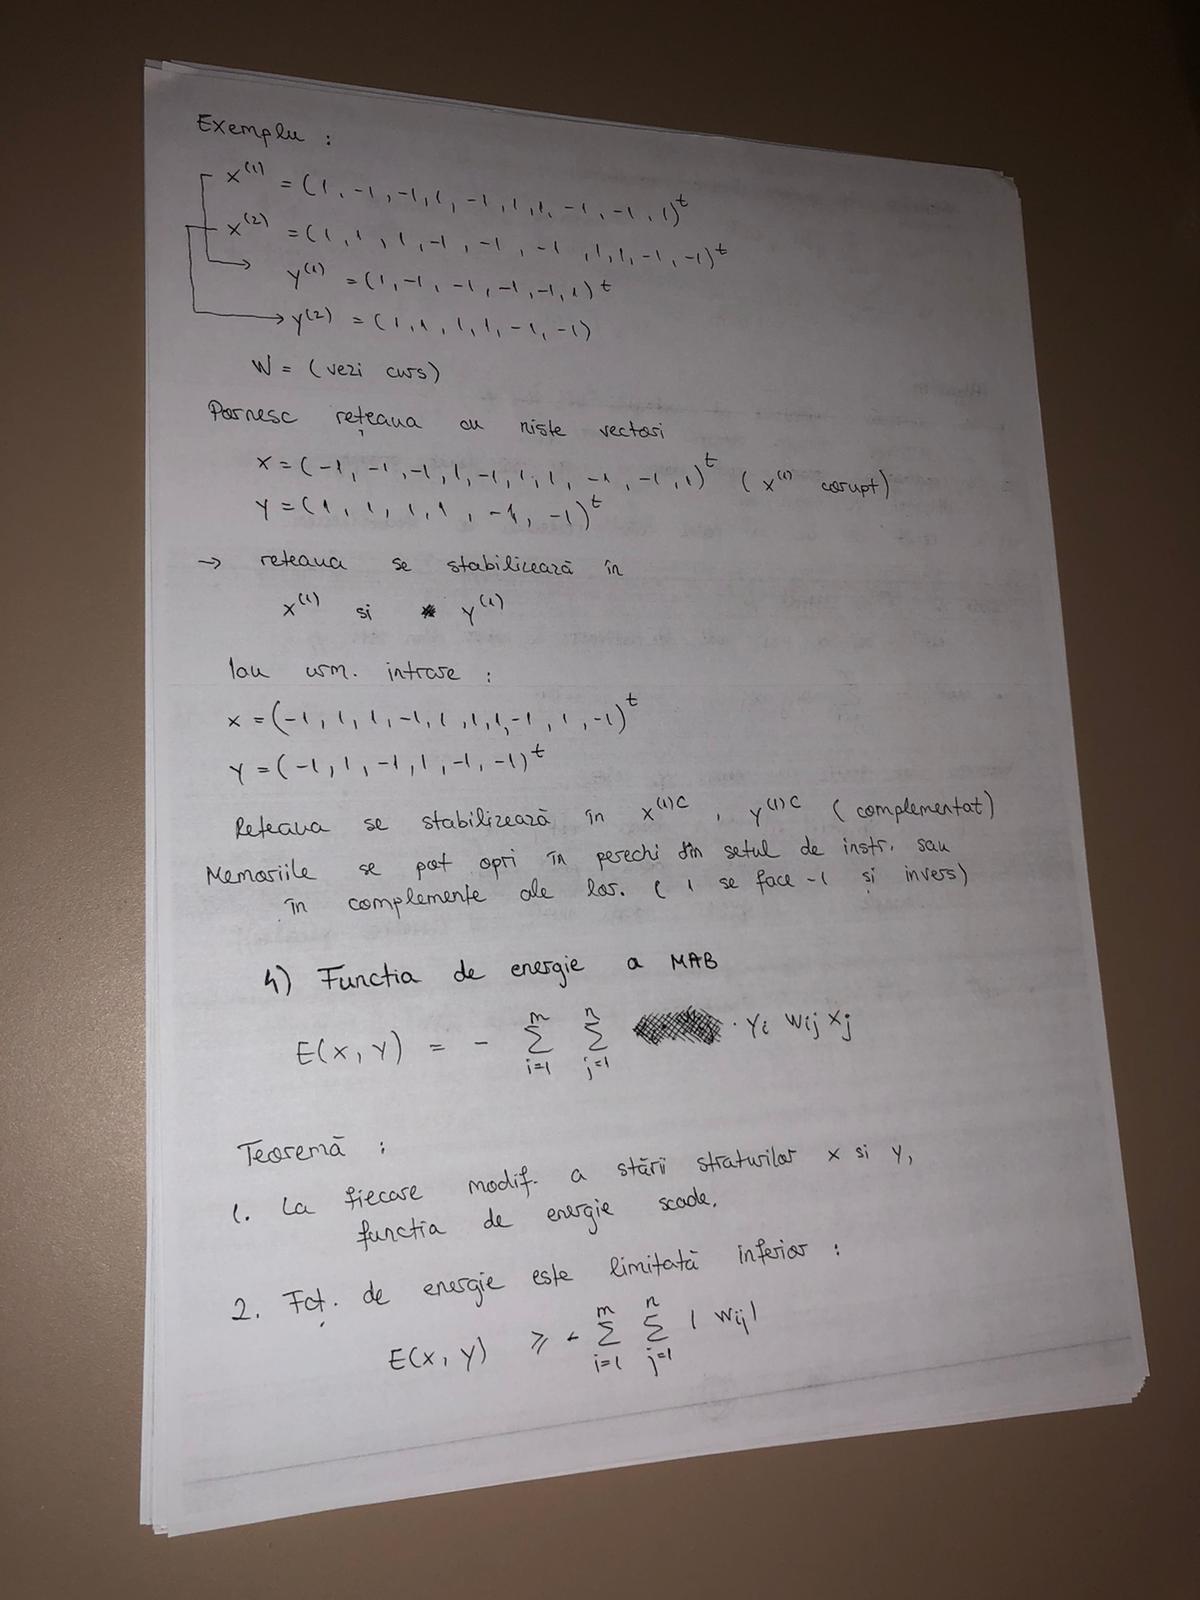 Exemplu :
x⁽¹⁾ = (1, -1, -1, 1, -1, 1, 1, -1, -1, 1)ᵗ
x⁽²⁾ = (1, 1, 1, -1, -1, -1, 1, 1, -1, -1)ᵗ
y⁽¹⁾ = (1, -1, -1, -1, -1, 1)ᵗ
y⁽²⁾ = (1, 1, 1, 1, -1, -1)
W = (vezi curs)
Pornesc rețeaua cu niste vectori
x = (-1, -1, -1, 1, -1, 1, 1, -1, -1, 1)ᵗ (x⁽¹⁾ corupt)
y = (1, 1, 1, 1, -1, -1)ᵗ
→ reteaua se stabilizează în
x⁽¹⁾ si y⁽¹⁾
Iau urm. intrare :
x = (-1, 1, 1, -1, 1, 1, 1, -1, 1, -1)ᵗ
y = (-1, 1, -1, 1, -1, -1)ᵗ
Reteaua se stabilizează în x⁽¹⁾ᶜ, y⁽¹⁾ᶜ (complementat)
Memoriile se pot opri în perechi din setul de instr. sau
în complemente ale lor. (1 se face -1 si invers)
4) Functia de energie a MAB
E(x, y) = - Σᵢ₌₁ᵐ Σⱼ₌₁ⁿ · yᵢ wᵢⱼ xⱼ
Teoremă :
1. La fiecare modif. a stării straturilor x si y,
functia de energie scade.
2. Fcț. de energie este limitată inferior :
E(x, y) ≥ - Σᵢ₌₁ᵐ Σⱼ₌₁ⁿ |wᵢⱼ|